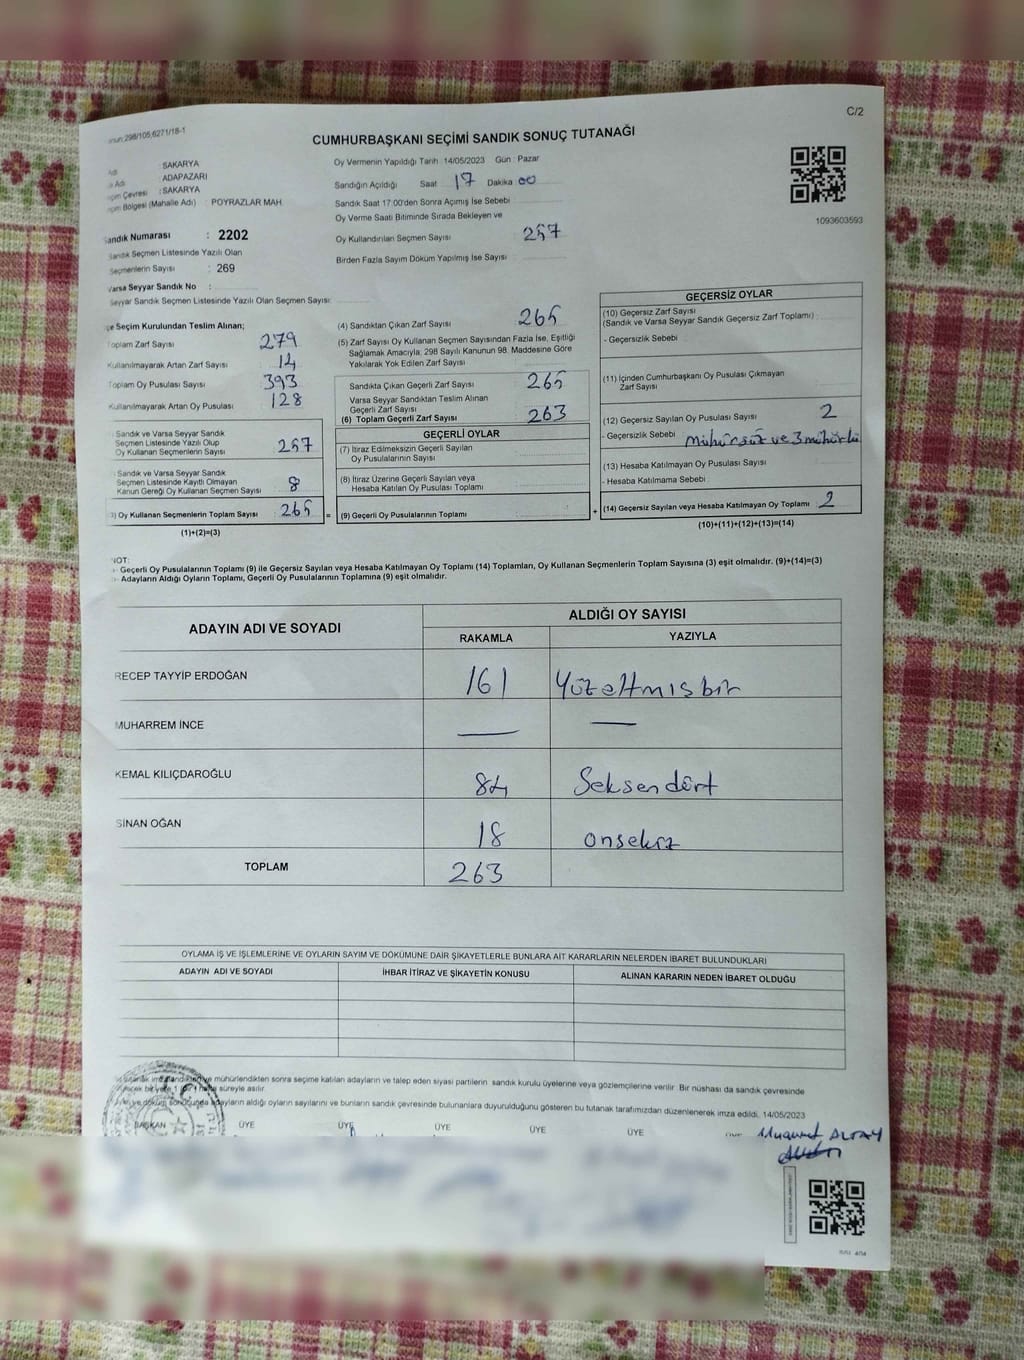 C/2
CUMHURBAŞKANI SEÇİMİ SANDIK SONUÇ TUTANAĞI
298/105;6271/18-1
: SAKARYA
Adı : ADAPAZARI
Çevresi : SAKARYA
Bölgesi (Mahalle Adı) POYRAZLAR MAH
Sandık Numarası : 2202
Sandık Seçmen Listesinde Yazılı Olan
Seçmenlerin Sayısı : 269
Varsa Seyyar Sandık No :
Seyyar Sandık Seçmen Listesinde Yazılı Olan Seçmen Sayısı:
Oy Vermenin Yapıldığı Tarih 14/05/2023 Gün : Pazar
Sandığın Açıldığı Saat 17 Dakika 00
Sandık Saat 17:00'den Sonra Açımış İse Sebebi
Oy Verme Saati Bitiminde Sırada Bekleyen ve
Oy Kullandırılan Seçmen Sayısı 257
Birden Fazla Sayım Döküm Yapılmış İse Sayısı
1093603593
Seçim Kurulundan Teslim Alınan;
Toplam Zarf Sayısı 279
Kullanılmayarak Artan Zarf Sayısı 14
Toplam Oy Pusulası Sayısı 393
Kullanılmayarak Artan Oy Pusulası 128
Sandık ve Varsa Seyyar Sandık
Seçmen Listesinde Yazılı Olup
Oy Kullanan Seçmenlerin Sayısı 257
Sandık ve Varsa Seyyar Sandık
Seçmen Listesinde Kayıtlı Olmayan
Kanun Gereği Oy Kullanan Seçmen Sayısı 8
) Oy Kullanan Seçmenlerin Toplam Sayısı 265 =
(1)+(2)=(3)
(4) Sandıktan Çıkan Zarf Sayısı 265
(5) Zarf Sayısı Oy Kullanan Seçmen Sayısından Fazla İse, Eşitliği
Sağlamak Amacıyla; 298 Sayılı Kanunun 98. Maddesine Göre
Yakılarak Yok Edilen Zarf Sayısı
Sandıkta Çıkan Geçerli Zarf Sayısı 265
Varsa Seyyar Sandıktan Teslim Alınan
Geçerli Zarf Sayısı
(6) Toplam Geçerli Zarf Sayısı 263
GEÇERLİ OYLAR
(7) İtiraz Edilmeksizin Geçerli Sayılan
Oy Pusulalarının Sayısı
(8) İtiraz Üzerine Geçerli Sayılan veya
Hesaba Katılan Oy Pusulası Toplamı
(9) Geçerli Oy Pusulalarının Toplamı +
GEÇERSİZ OYLAR
(10) Geçersiz Zarf Sayısı
(Sandık ve Varsa Seyyar Sandık Geçersiz Zarf Toplamı) :
- Geçersizlik Sebebi :
(11) İçinden Cumhurbaşkanı Oy Pusulası Çıkmayan
Zarf Sayısı
(12) Geçersiz Sayılan Oy Pusulası Sayısı 2
- Geçersizlik Sebebi mühürsüz ve 3 mühürlü
(13) Hesaba Katılmayan Oy Pusulası Sayısı
- Hesaba Katılmama Sebebi
(14) Geçersiz Sayılan veya Hesaba Katılmayan Oy Toplamı 2
(10)+(11)+(12)+(13)=(14)
NOT:
- Geçerli Oy Pusulalarının Toplamı (9) ile Geçersiz Sayılan veya Hesaba Katılmayan Oy Toplamı (14) Toplamları, Oy Kullanan Seçmenlerin Toplam Sayısına (3) eşit olmalıdır. (9)+(14)=(3)
- Adayların Aldığı Oyların Toplamı, Geçerli Oy Pusulalarının Toplamına (9) eşit olmalıdır.
ADAYIN ADI VE SOYADI ALDIĞI OY SAYISI
RAKAMLA YAZIYLA
RECEP TAYYİP ERDOĞAN 161 Yüzeltmişbir
MUHARREM İNCE — —
KEMAL KILIÇDAROĞLU 84 Seksendört
SİNAN OĞAN 18 onsekiz
TOPLAM 263
OYLAMA İŞ VE İŞLEMLERİNE VE OYLARIN SAYIM VE DÖKÜMÜNE DAİR ŞİKAYETLERLE BUNLARA AİT KARARLARIN NELERDEN İBARET BULUNDUKLARI
ADAYIN ADI VE SOYADI İHBAR İTİRAZ VE ŞİKAYETİN KONUSU ALINAN KARARIN NEDEN İBARET OLDUĞU
mühürlendikten sonra seçime katılan adayların ve talep eden siyasi partilerin sandık kurulu üyelerine veya gözlemçilerine verilir. Bir nüshası da sandık çevresinde
süreyle asılır.
adayların aldığı oyların sayılarını ve bunların sandık çevresinde bulunanlara duyurulduğunu gösteren bu tutanak tarafımızdan düzenlenerek imza edildi. 14/05/2023
BAŞKAN ÜYE ÜYE ÜYE ÜYE ÜYE
ALTAY